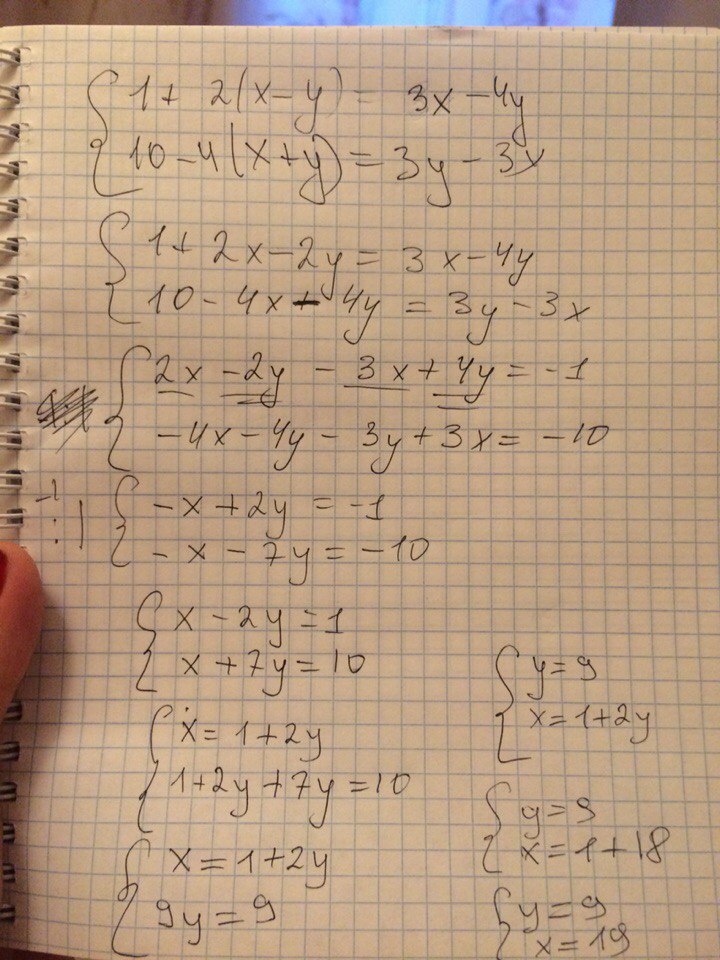 1+ 2(x-y) = 3x-4y
10-4(x+y) = 3y-3x
1+2x-2y = 3x-4y
10-4x-4y = 3y-3x
2x-2y-3x+4y = -1
-4x-4y-3y+3x = -10
-1
:|
-x+2y = -1
-x-7y = -10
x-2y = 1
x+7y = 10
x = 1+2y
1+2y+7y = 10
x = 1+2y
9y = 9
y = 9
x = 1+2y
y = 9
x = 1+18
y = 9
x = 19